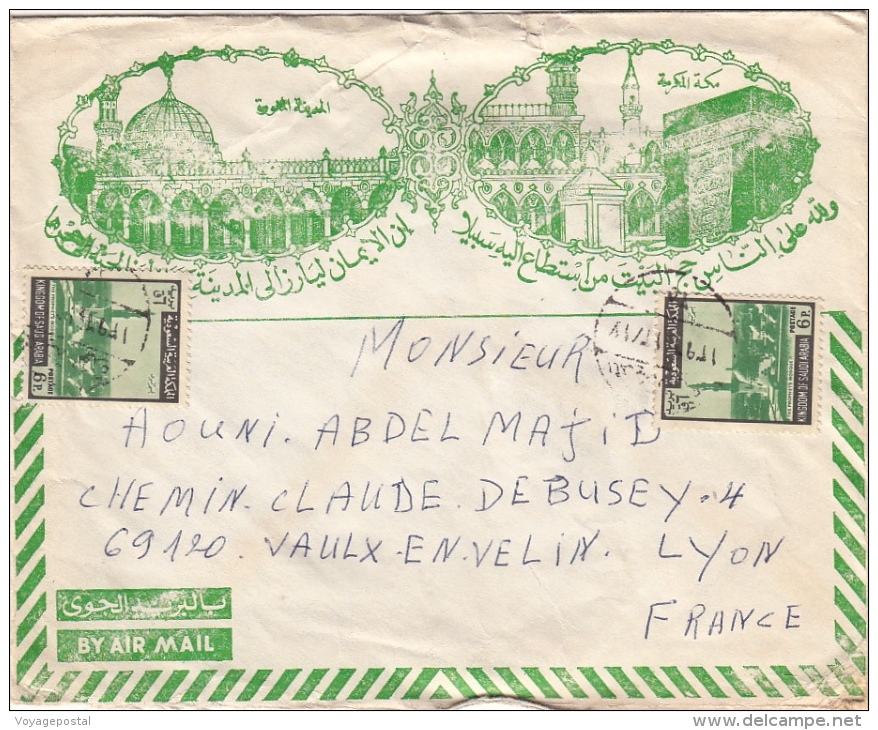 المدينة المنورة
مكة المكرمة
ولله على الناس حج البيت من استطاع إليه سبيلا
إن الإيمان ليأرز إلى المدينة
KINGDOM OF SAUDI ARABIA
POSTAGE
6 P.
المملكة العربية السعودية
KINGDOM OF SAUDI ARABIA
POSTAGE
6 P.
المملكة العربية السعودية
MONSIEUR
AOUNI. ABDEL MAJID
CHEMIN. CLAUDE. DEBUSEY. 4
69120. VAULX. EN. VELIN. LYON
FRANCE
بالبريد الجوى
BY AIR MAIL
Voyagepostal
www.delcampe.net